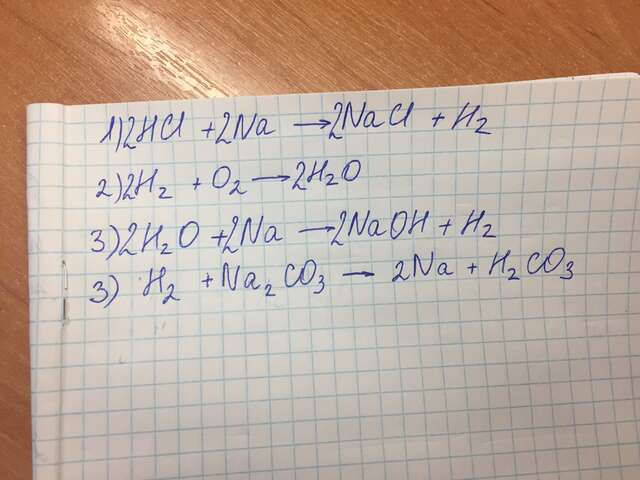 1) 2HCl + 2Na → 2NaCl + H₂
2) 2H₂ + O₂ → 2H₂O
3) 2H₂O + 2Na → 2NaOH + H₂
3) H₂ + Na₂CO₃ → 2Na + H₂CO₃